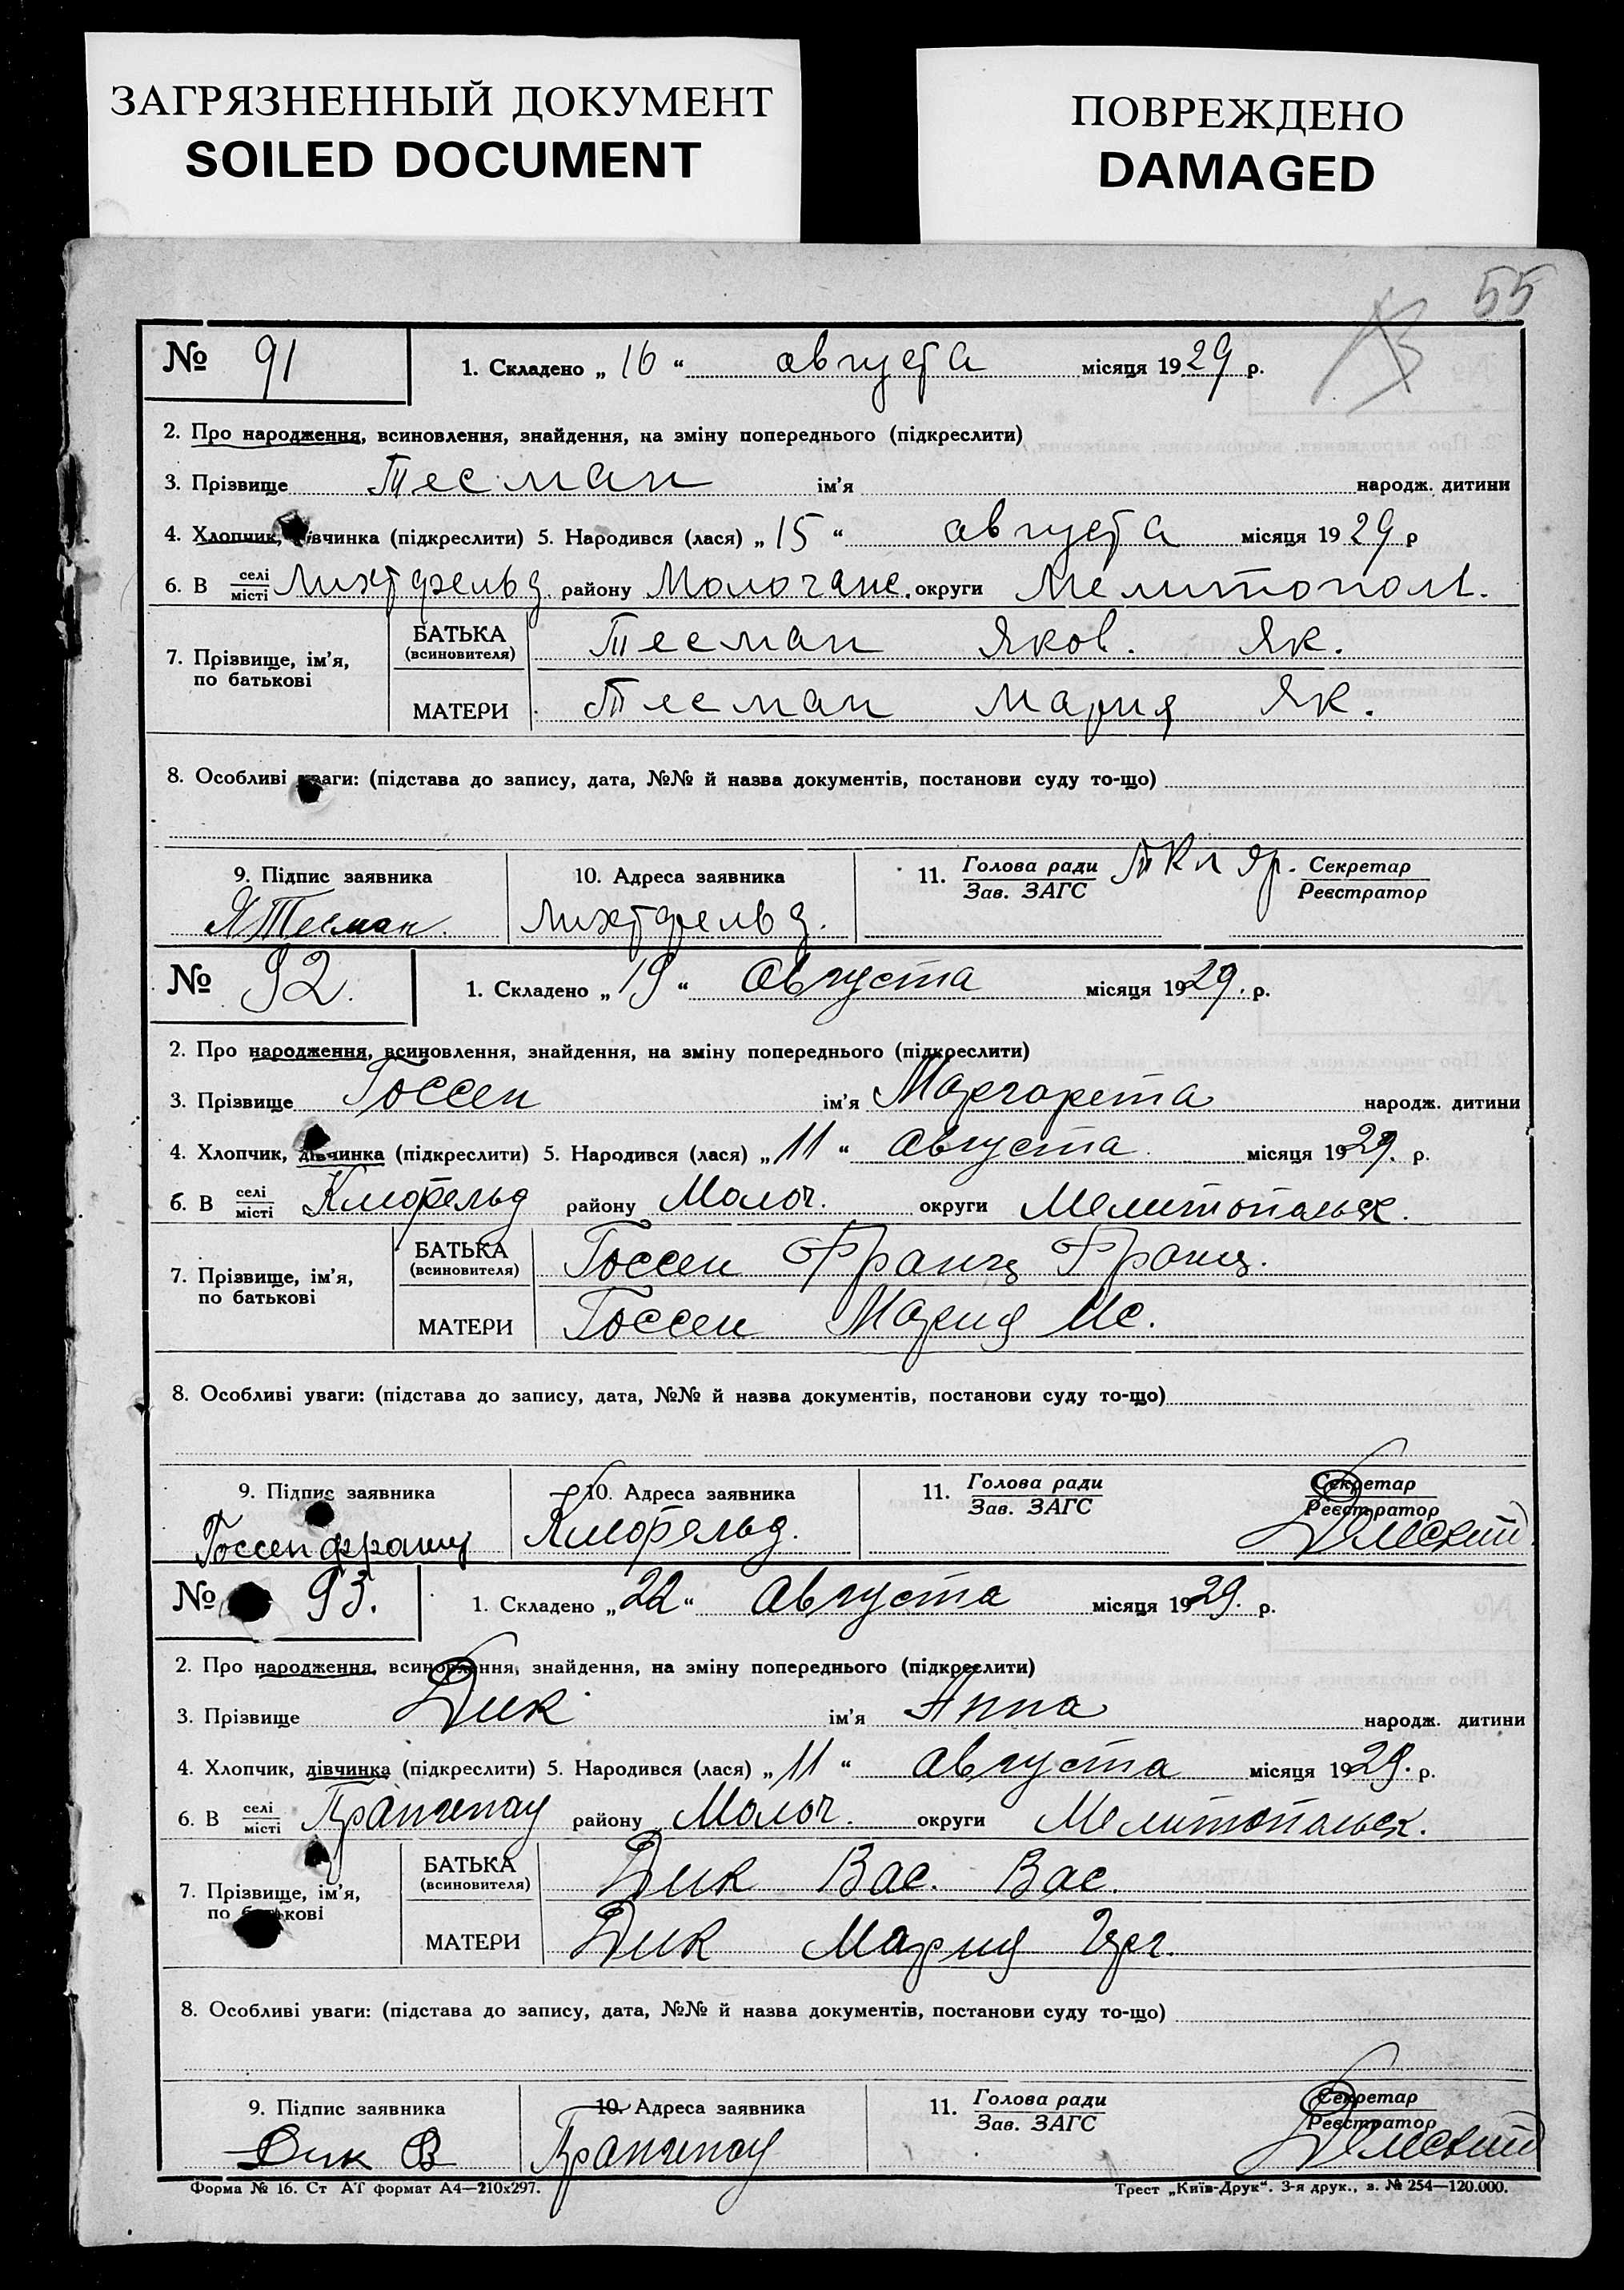 ЗАГРЯЗНЕННЫЙ ДОКУМЕНТ
SOILED DOCUMENT
ПОВРЕЖДЕНО
DAMAGED
55
№ 91 1. Складено „ 16 “ августа місяця 1929 р.
2. Про народження, всиновлення, знайдення, на зміну попереднього (підкреслити)
3. Прізвище Тесман ім'я народж. дитини
4. Хлопчик, дівчинка (підкреслити) 5. Народився (лася) „ 15 “ августа місяця 1929 р
6. В селі місті Лихтфельд. району Молочанс. округи Мелитополь.
7. Прізвище, ім'я, по батькові
БАТЬКА (всиновителя) Тесман Яков. Як.
МАТЕРИ Тесман Мария Як.
8. Особливі уваги: (підстава до запису, дата, №№ й назва документів, постанови суду то-що)
9. Підпис заявника 10. Адреса заявника 11. Голова ради Зав. ЗАГС Секретар Реєстратор
Я Тесман. Лихтфельд.
№ 92. 1. Складено „ 19 “ августа місяця 1929. р.
2. Про народження, всиновлення, знайдення, на зміну попереднього (підкреслити)
3. Прізвище Госсен ім'я Маргарета народж. дитини
4. Хлопчик, дівчинка (підкреслити) 5. Народився (лася) „ 11 “ августа місяця 1929. р.
6. В селі місті Клифельд району Молоч. округи Мелитопольск.
7. Прізвище, ім'я, по батькові
БАТЬКА (всиновителя) Госсен Франц Франц.
МАТЕРИ Госсен Мария Ис.
8. Особливі уваги: (підстава до запису, дата, №№ й назва документів, постанови суду то-що)
9. Підпис заявника 10. Адреса заявника 11. Голова ради Зав. ЗАГС Секретар Реєстратор
Госсен франц Клифельд.
№ 93. 1. Складено „ 22 “ августа місяця 1929. р.
2. Про народження, всиновлення, знайдення, на зміну попереднього (підкреслити)
3. Прізвище Дик ім'я Анна народж. дитини
4. Хлопчик, дівчинка (підкреслити) 5. Народився (лася) „ 11 “ августа місяця 1929. р.
6. В селі місті Прангенау району Молоч. округи Мелитопольск.
7. Прізвище, ім'я, по батькові
БАТЬКА (всиновителя) Дик Вас. Вас.
МАТЕРИ Дик Мария
8. Особливі уваги: (підстава до запису, дата, №№ й назва документів, постанови суду то-що)
9. Підпис заявника 10. Адреса заявника 11. Голова ради Зав. ЗАГС Секретар Реєстратор
Дик В Прангенау
Форма № 16. Ст АТ формат А4—210х297. Трест „Київ-Друк“. 3-я друк., з. № 254—120.000.